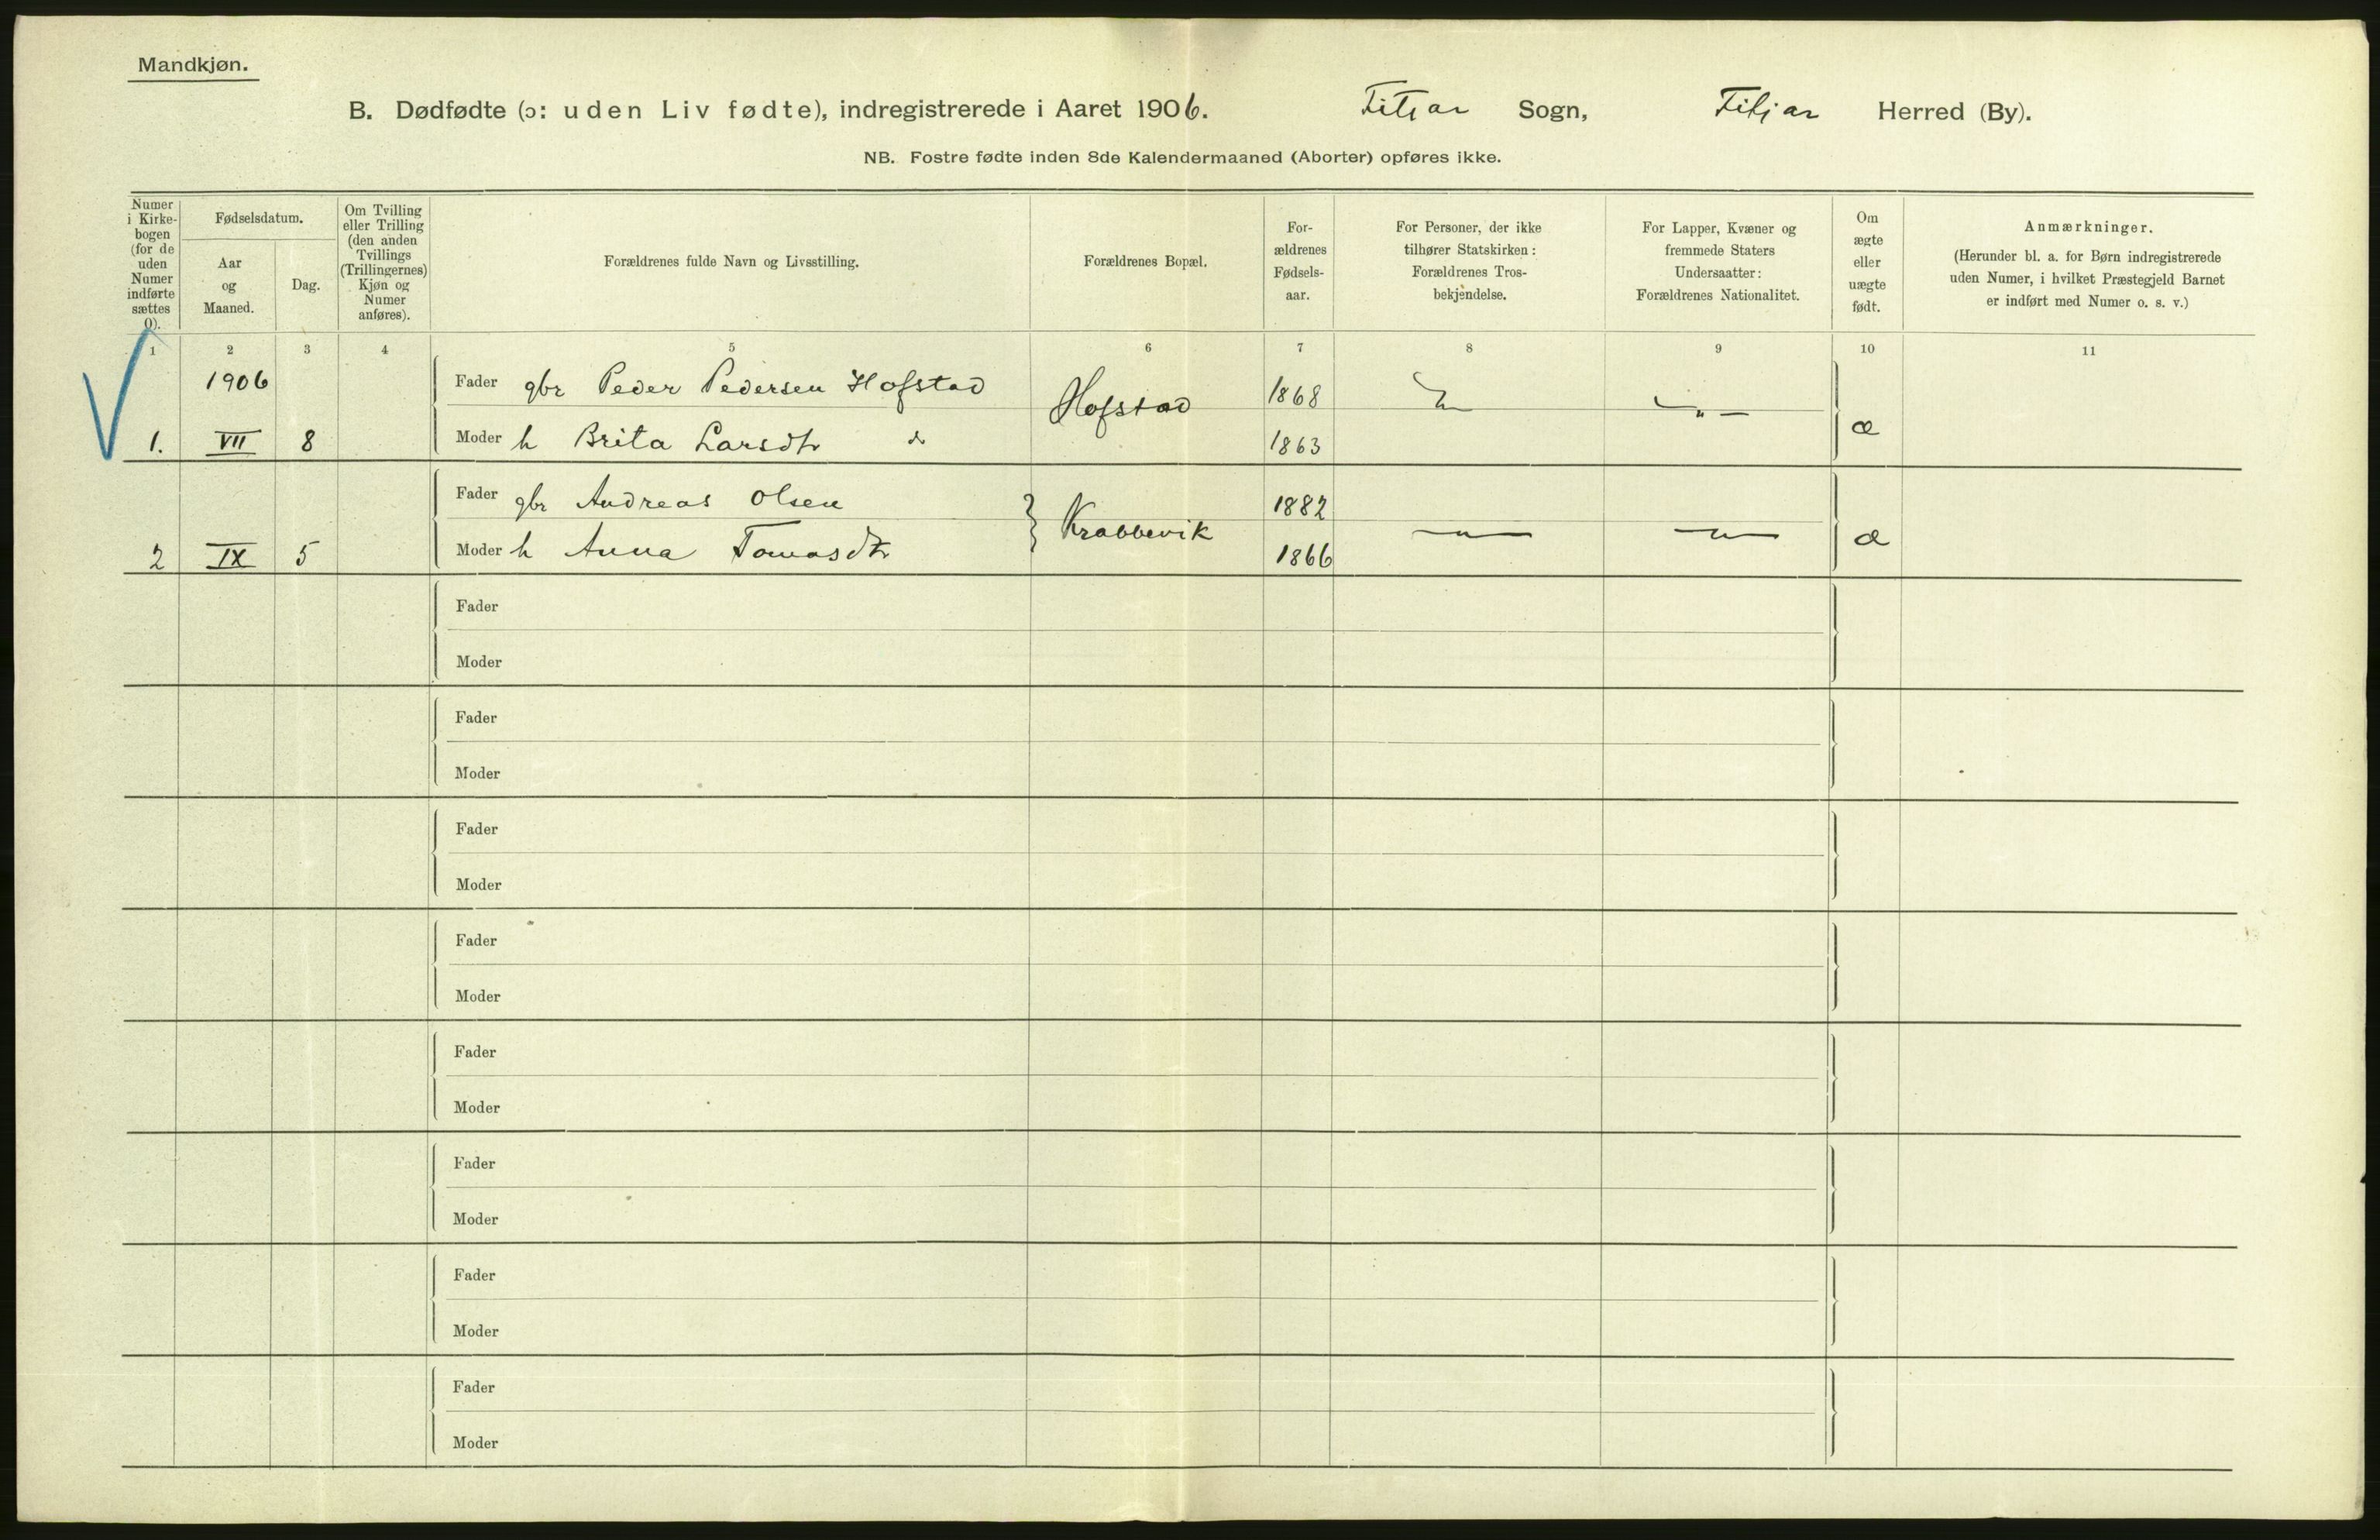 Mandkjøn.
B. Dødfødte (ɔ: uden Liv fødte), indregistrerede i Aaret 1906. Fitjar Sogn, Fitjar Herred (By).
NB. Fostre fødte inden 8de Kalendermaaned (Aborter) opføres ikke.
Numer
i Kirke-
bogen
(for de
uden
Numer
indførte
sættes
0).
Fødselsdatum.
Aar
og
Maaned.
Dag.
Om Tvilling
eller Trilling
(den anden
Tvillings
(Trillingernes)
Kjøn og
Numer
anføres).
Forældrenes fulde Navn og Livsstilling.
Forældrenes Bopæl.
For-
ældrenes
Fødsels-
aar.
For Personer, der ikke
tilhører Statskirken:
Forældrenes Tros-
bekjendelse.
For Lapper, Kvæner og
fremmede Staters
Undersaatter:
Forældrenes Nationalitet.
Om
ægte
eller
uægte
født.
Anmærkninger.
(Herunder bl. a. for Børn indregistrerede
uden Numer, i hvilket Præstegjeld Barnet
er indført med Numer o. s. v.)
1 2 3 4 5 6 7 8 9 10 11
1906
Fader gbr Peder Pedersen Hofstad Hofstad 1868
1. VII 8 Moder h Brita Larsdtr 1863 æ
Fader gbr Andreas Olsen Krabbevik 1882
2 IX 5 Moder h Anna Tomasdtr 1866 — " — — " — æ
Fader
Moder
Fader
Moder
Fader
Moder
Fader
Moder
Fader
Moder
Fader
Moder
Fader
Moder
Fader
Moder